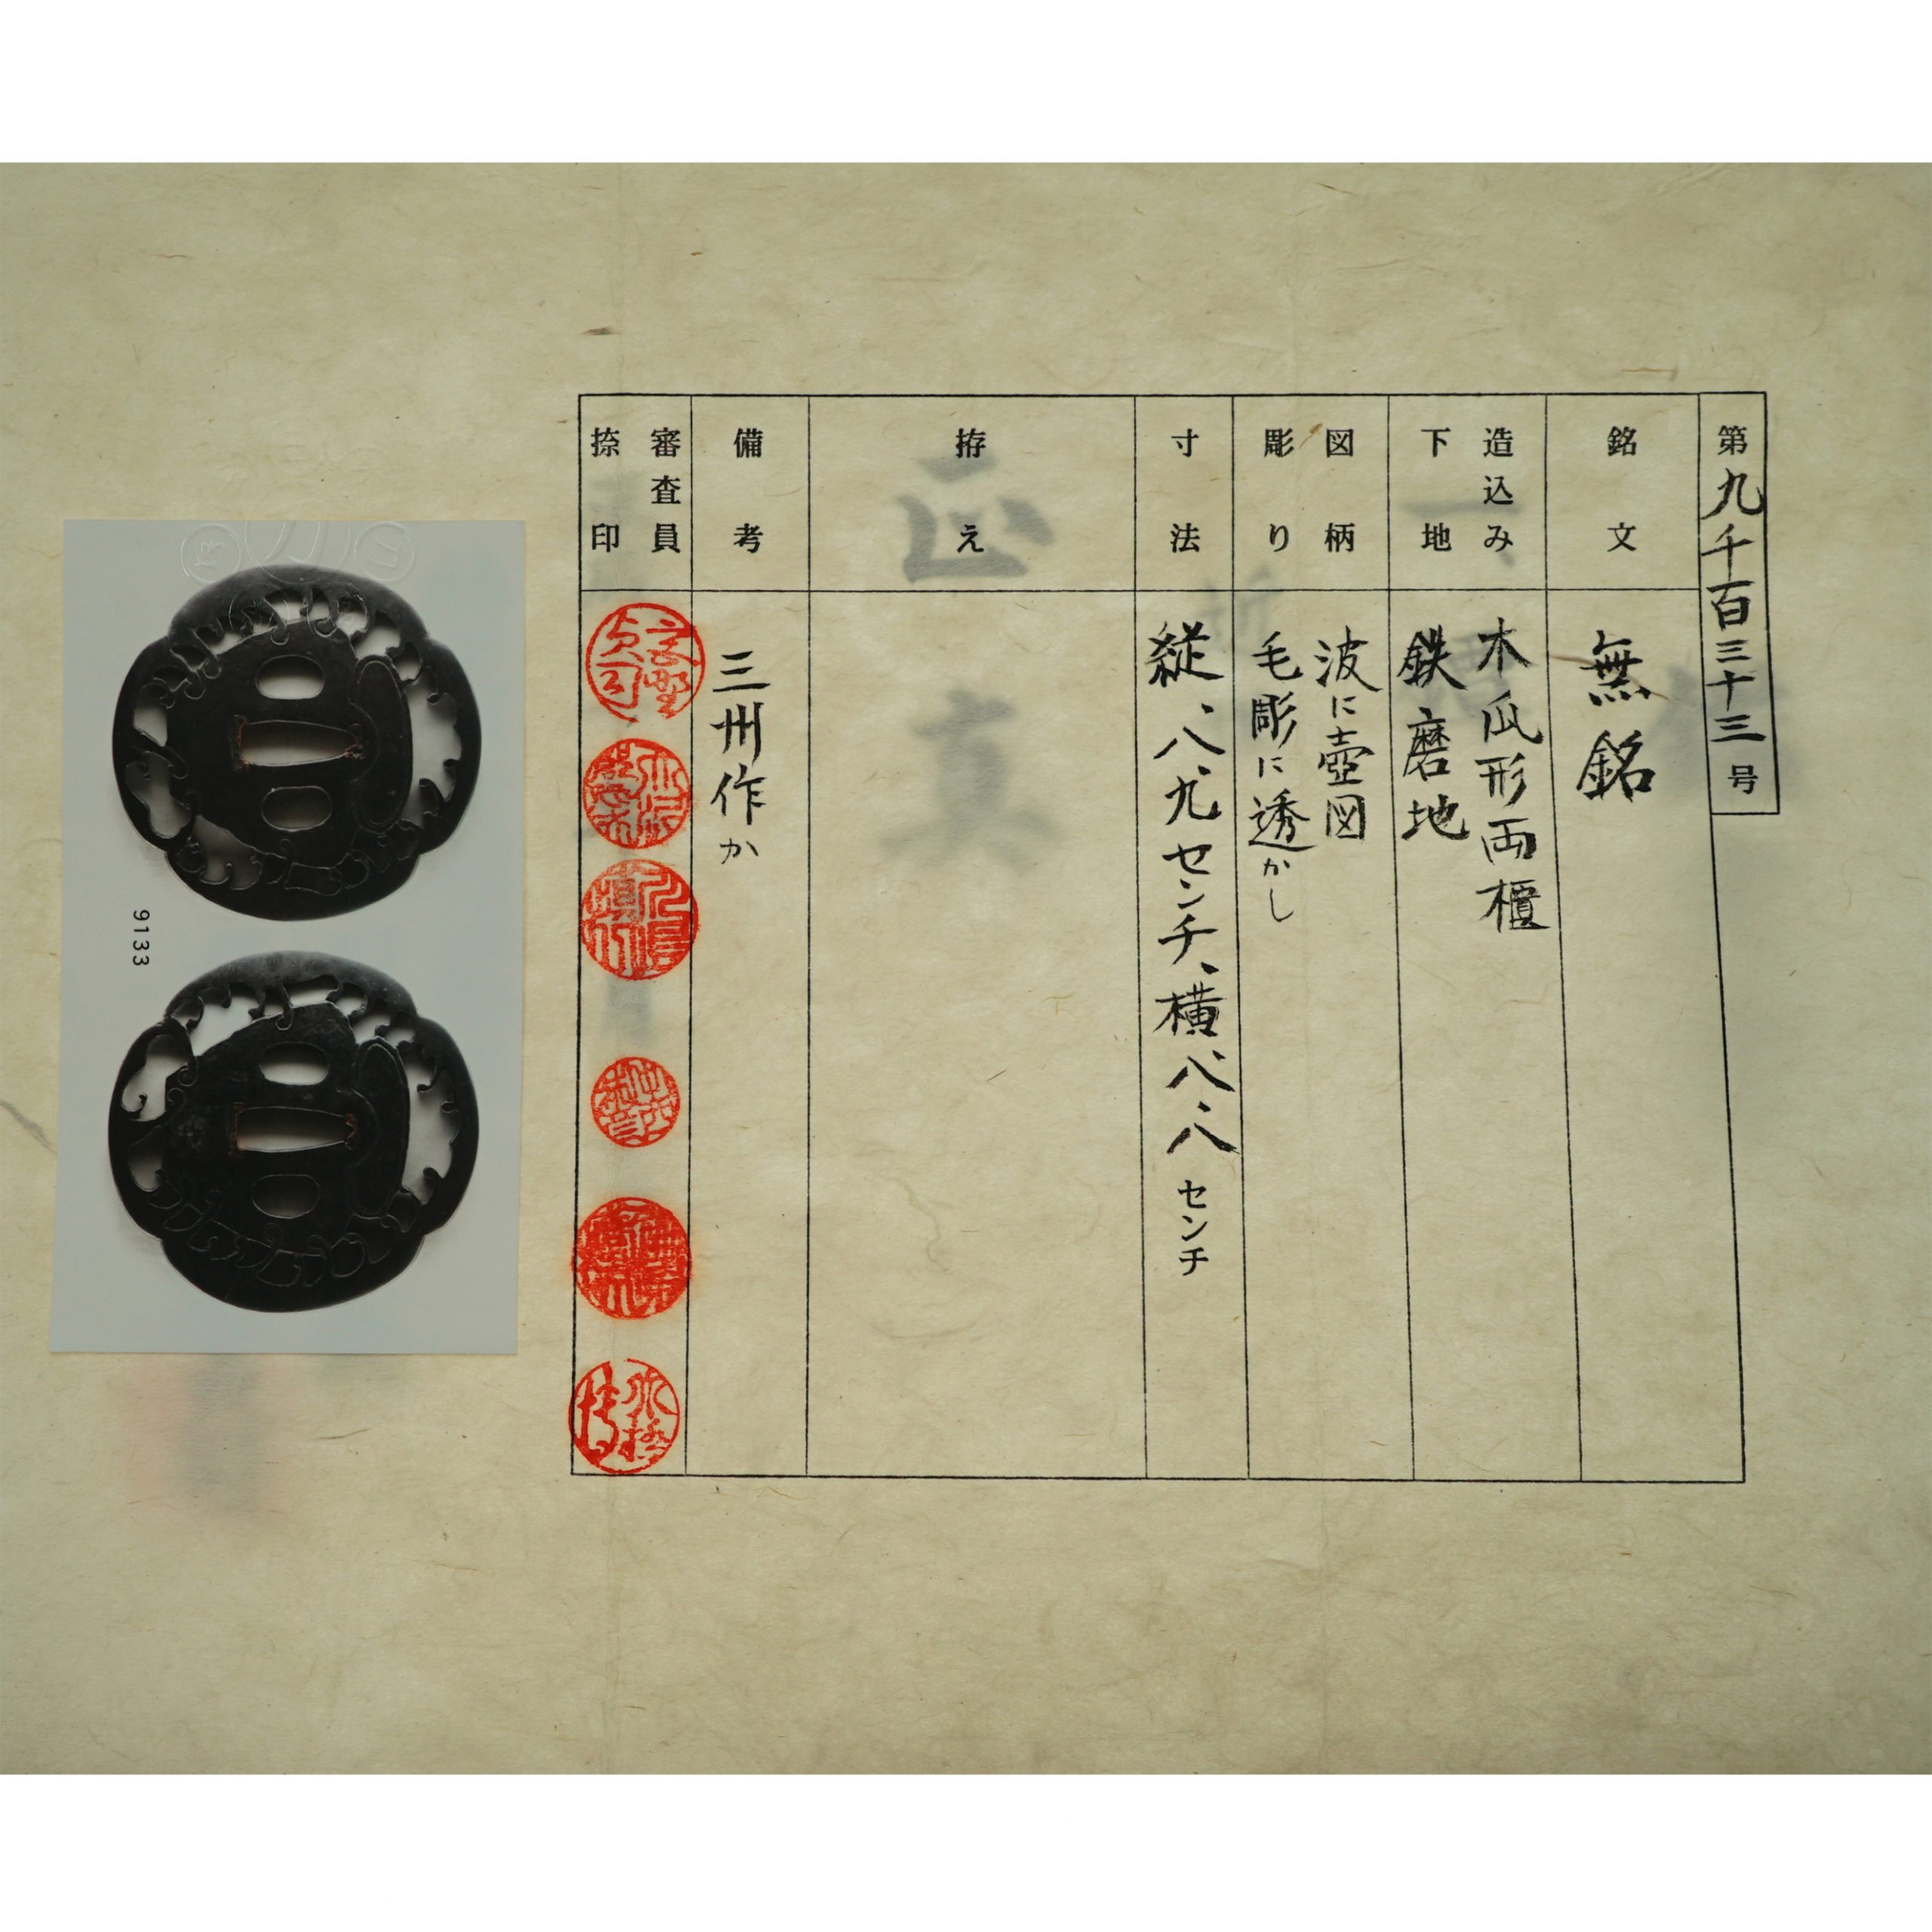 第九千百三十三号
銘文
無銘
造込み
下地
木瓜形両櫃
鉄磨地
図柄
彫り
波に壺図
毛彫に透かし
寸法
縦、八、九センチ、横八、八センチ
拵え
備考
三州作か
審査員
捺印
9133